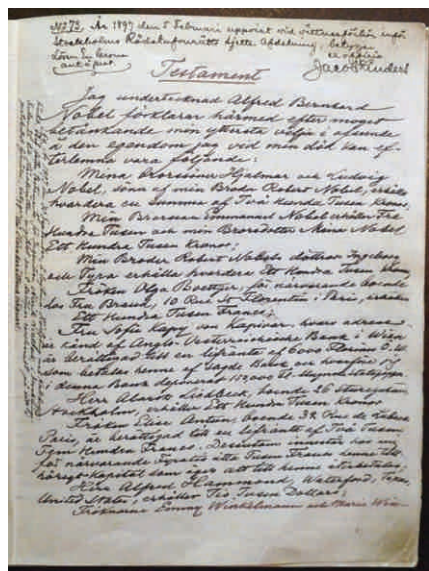 No 73. År 1897 den 5 Februari uppvist vid vittnesförhör inför
Stockholms Rådstufvurätts sjette Afdelning, betygar
ex officio
antaget.
Testament
Jag undertecknad Alfred Bernhard
Nobel förklarar härmed efter moget
betänkande min yttersta vilja i afseende
å den egendom jag vid min död kan ef-
terlemna vara följande:
Mina Brorsöner Hjalmar och Ludvig
Nobel, söner af min Broder Robert Nobel, erhålla
hvardera en summa af Två Hundra Tusen Kronor;
Min Brorson Emmanuel Nobel erhåller Tre
Hundra Tusen och min Brorsdotter Mina Nobel
Ett Hundra Tusen Kronor;
Min Broder Robert Nobels döttrar Ingeborg
och Tyra erhålla hvardera Ett Hundra Tusen Kronor;
Fröken Olga Boettger, för närvarande boende
hos Fru Brand, 10 Rue St Florentin i Paris, erhåller
Ett Hundra Tusen Francs;
Fru Sofie Kapy von Kapivar, hvars adress
är känd af Anglo-Oesterreichische Bank i Wien
är berättigad till en lifränta af 6000 Florins Ö.W.
som betalas henne af sagde Bank och hvarföre jag
i denna Bank deponerat 150,000 Fl.
Herr Alarik Liedbeck, boende 26 Sturegatan,
Stockholm, erhåller Ett Hundra Tusen Kronor
Fröken Elise Antun, boende 32 Rue de Lubeck,
Paris, är berättigad till en lifränta af Två Tusen
Fem Hundra Francs. Desutom innestår hos mig
för närvarande Fyratio åtta Tusen Francs henne till-
hörigt kapital som äger att till henne återbetalas;
Herr Alfred Hammond, Waterford, Texas,
United States, erhåller Tio Tusen Dollars;
Fröknarne Emmy Winkelmann och Marie Win-